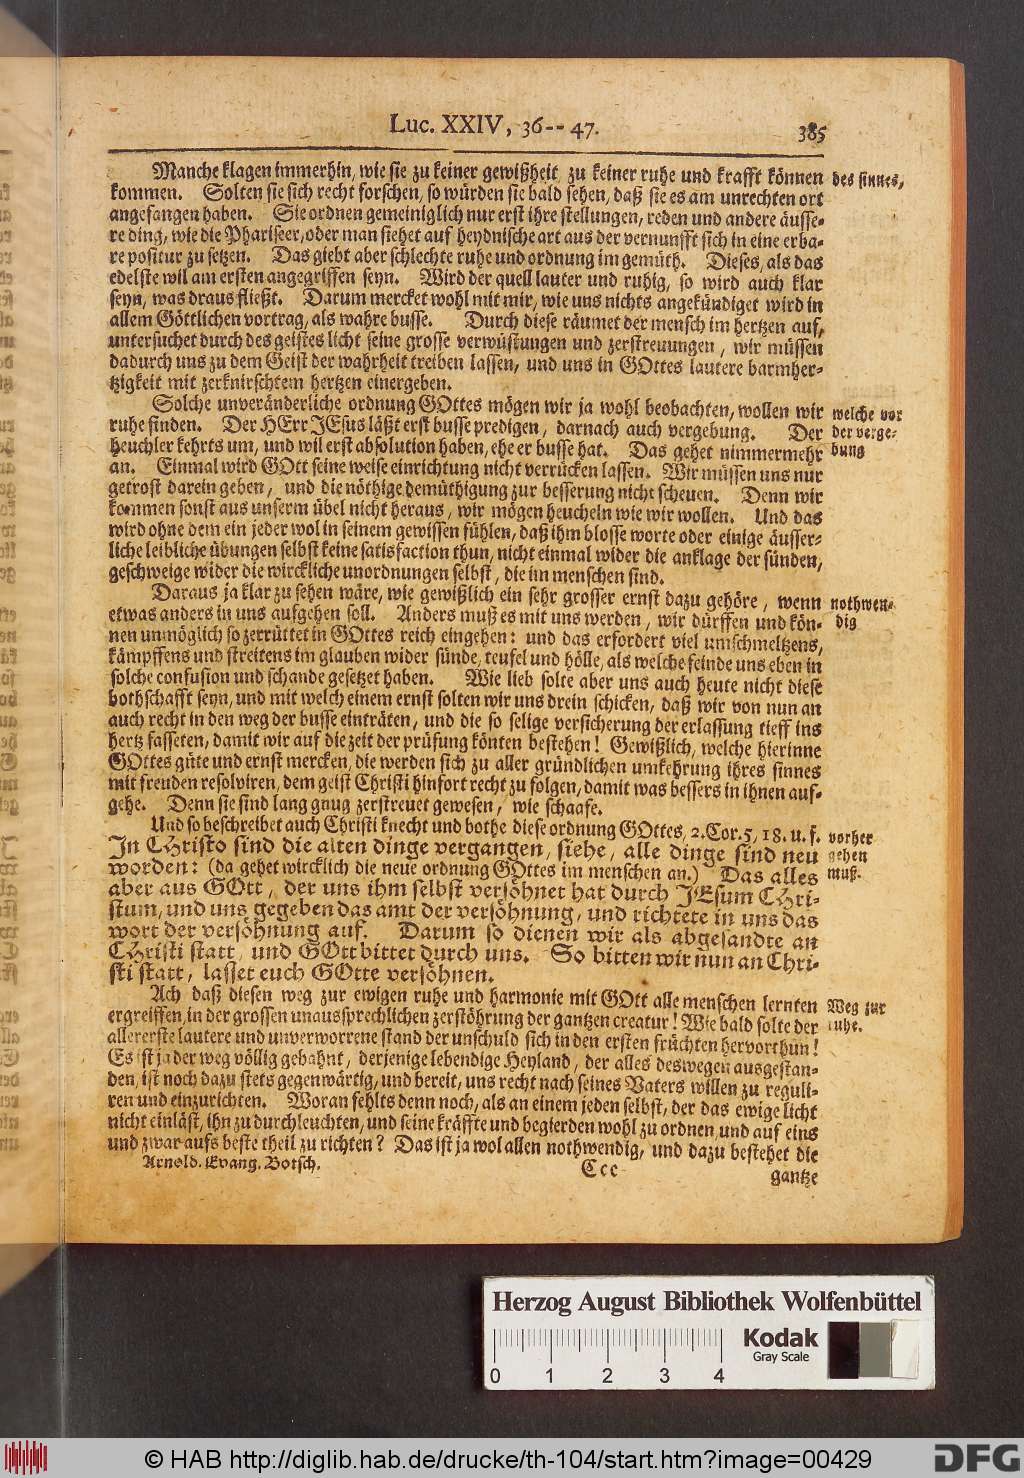 Luc. XXIV, 36--47. 385
Manche klagen immerhin, wie sie zu keiner gewißheit, zu keiner ruhe und krafft können
kommen. Solten sie sich recht forschen, so würden sie bald sehen, daß sie es am unrechten ort
angefangen haben. Sie ordnen gemeiniglich nur erst ihre stellungen, reden und andere äusse-
re ding, wie die Phariseer, oder man siehet auf heydnische art aus der vernunfft sich in eine erba-
re positur zu setzen. Das giebt aber schlechte ruhe und ordnung im gemüth. Dieses, als das
edelste wil am ersten angegriffen seyn. Wird der quell lauter und ruhig, so wird auch klar
seyn, was draus fließt. Darum mercket wohl mit mir, wie uns nichts angekündiget wird in
allem Göttlichen vortrag, als wahre busse. Durch diese räumet der mensch im hertzen auf,
untersuchet durch des geistes licht seine grosse verwüstungen und zerstreuungen, wir müssen
dadurch uns zu dem Geist der wahrheit treiben lassen, und uns in GOttes lautere barmher-
tzigkeit mit zerknirschtem hertzen einergeben.
des sinnes,
Solche unveränderliche ordnung GOttes mögen wir ja wohl beobachten, wollen wir
ruhe finden. Der HErr JEsus läßt erst busse predigen, darnach auch vergebung. Der
heuchler kehrts um, und wil erst absolution haben, ehe er busse hat. Das gehet nimmermehr
an. Einmal wird GOtt seine weise einrichtung nicht verrücken lassen. Wir müssen uns nur
getrost darein geben, und die nöthige demüthigung zur besserung nicht scheuen. Denn wir
kommen sonst aus unserm übel nicht heraus, wir mögen heucheln wie wir wollen. Und das
wird ohne dem ein jeder wol in seinem gewissen fühlen, daß ihm blosse worte oder einige äusser-
liche leibliche übungen selbst keine satisfaction thun, nicht einmal wider die anklage der sünden,
geschweige wider die wirckliche unordnungen selbst, die im menschen sind.
welche vor
der verge-
bung
Daraus ja klar zu sehen wäre, wie gewißlich ein sehr grosser ernst dazu gehöre, wenn
etwas anders in uns aufgehen soll. Anders muß es mit uns werden, wir dürffen und kön-
nen unmöglich so zerrüttet in GOttes reich eingehen: und das erfordert viel umschmeltzens,
kämpffens und streitens im glauben wider sünde, teufel und hölle, als welche feinde uns eben in
solche confusion und schande gesetzet haben. Wie lieb solte aber uns auch heute nicht diese
bothschafft seyn, und mit welch einem ernst solten wir uns drein schicken, daß wir von nun an
auch recht in den weg der busse einträten, und die so selige versicherung der erlassung tieff ins
hertz fasseten, damit wir auf die zeit der prüfung könten bestehen! Gewißlich, welche hierinne
GOttes güte und ernst mercken, die werden sich zu aller gründlichen umkehrung ihres sinnes
mit freuden resolviren, dem geist Christi hinfort recht zu folgen, damit was bessers in ihnen auf-
gehe. Denn sie sind lang gnug zerstreuet gewesen, wie schaafe.
nothwen-
dig
Und so beschreibet auch Christi knecht und bothe diese ordnung GOttes, 2. Cor. 5, 18. u. f.
In CHristo sind die alten dinge vergangen, siehe, alle dinge sind neu
worden: (da gehet wircklich die neue ordnung GOttes im menschen an.) Das alles
aber aus GOtt, der uns ihm selbst versöhnet hat durch JEsum CHri-
stum, und uns gegeben das amt der versöhnung, und richtete in uns das
wort der versöhnung auf. Darum so dienen wir als abgesandte an
CHristi statt, und GOtt bittet durch uns. So bitten wir nun an Chri-
sti statt, lasset euch GOtte versöhnen.
vorher
gehen
muß.
Ach daß diesen weg zur ewigen ruhe und harmonie mit GOtt alle menschen lernten
ergreiffen, in der grossen unaussprechlichen zerstöhrung der gantzen creatur! Wie bald solte der
allererste lautere und unverworrene stand der unschuld sich in den ersten früchten hervorthun!
Es ist ja der weg völlig gebahnt, derjenige lebendige Heyland, der alles deswegen ausgestan-
den, ist noch dazu stets gegenwärtig, und bereit, uns recht nach seines Vaters willen zu reguli-
ren und einzurichten. Woran fehlts denn noch, als an einem jeden selbst, der das ewige licht
nicht einläst, ihn zu durchleuchten, und seine kräffte und begierden wohl zu ordnen, und auf eins
und zwar aufs beste theil zu richten? Das ist ja wol allen nothwendig, und dazu bestehet die
Weg zur
ruhe.
Arnold. Evang. Botsch. Ccc gantze
Herzog August Bibliothek Wolfenbüttel
0 1 2 3 4
Kodak
Gray Scale
© HAB http://diglib.hab.de/drucke/th-104/start.htm?image=00429
DFG